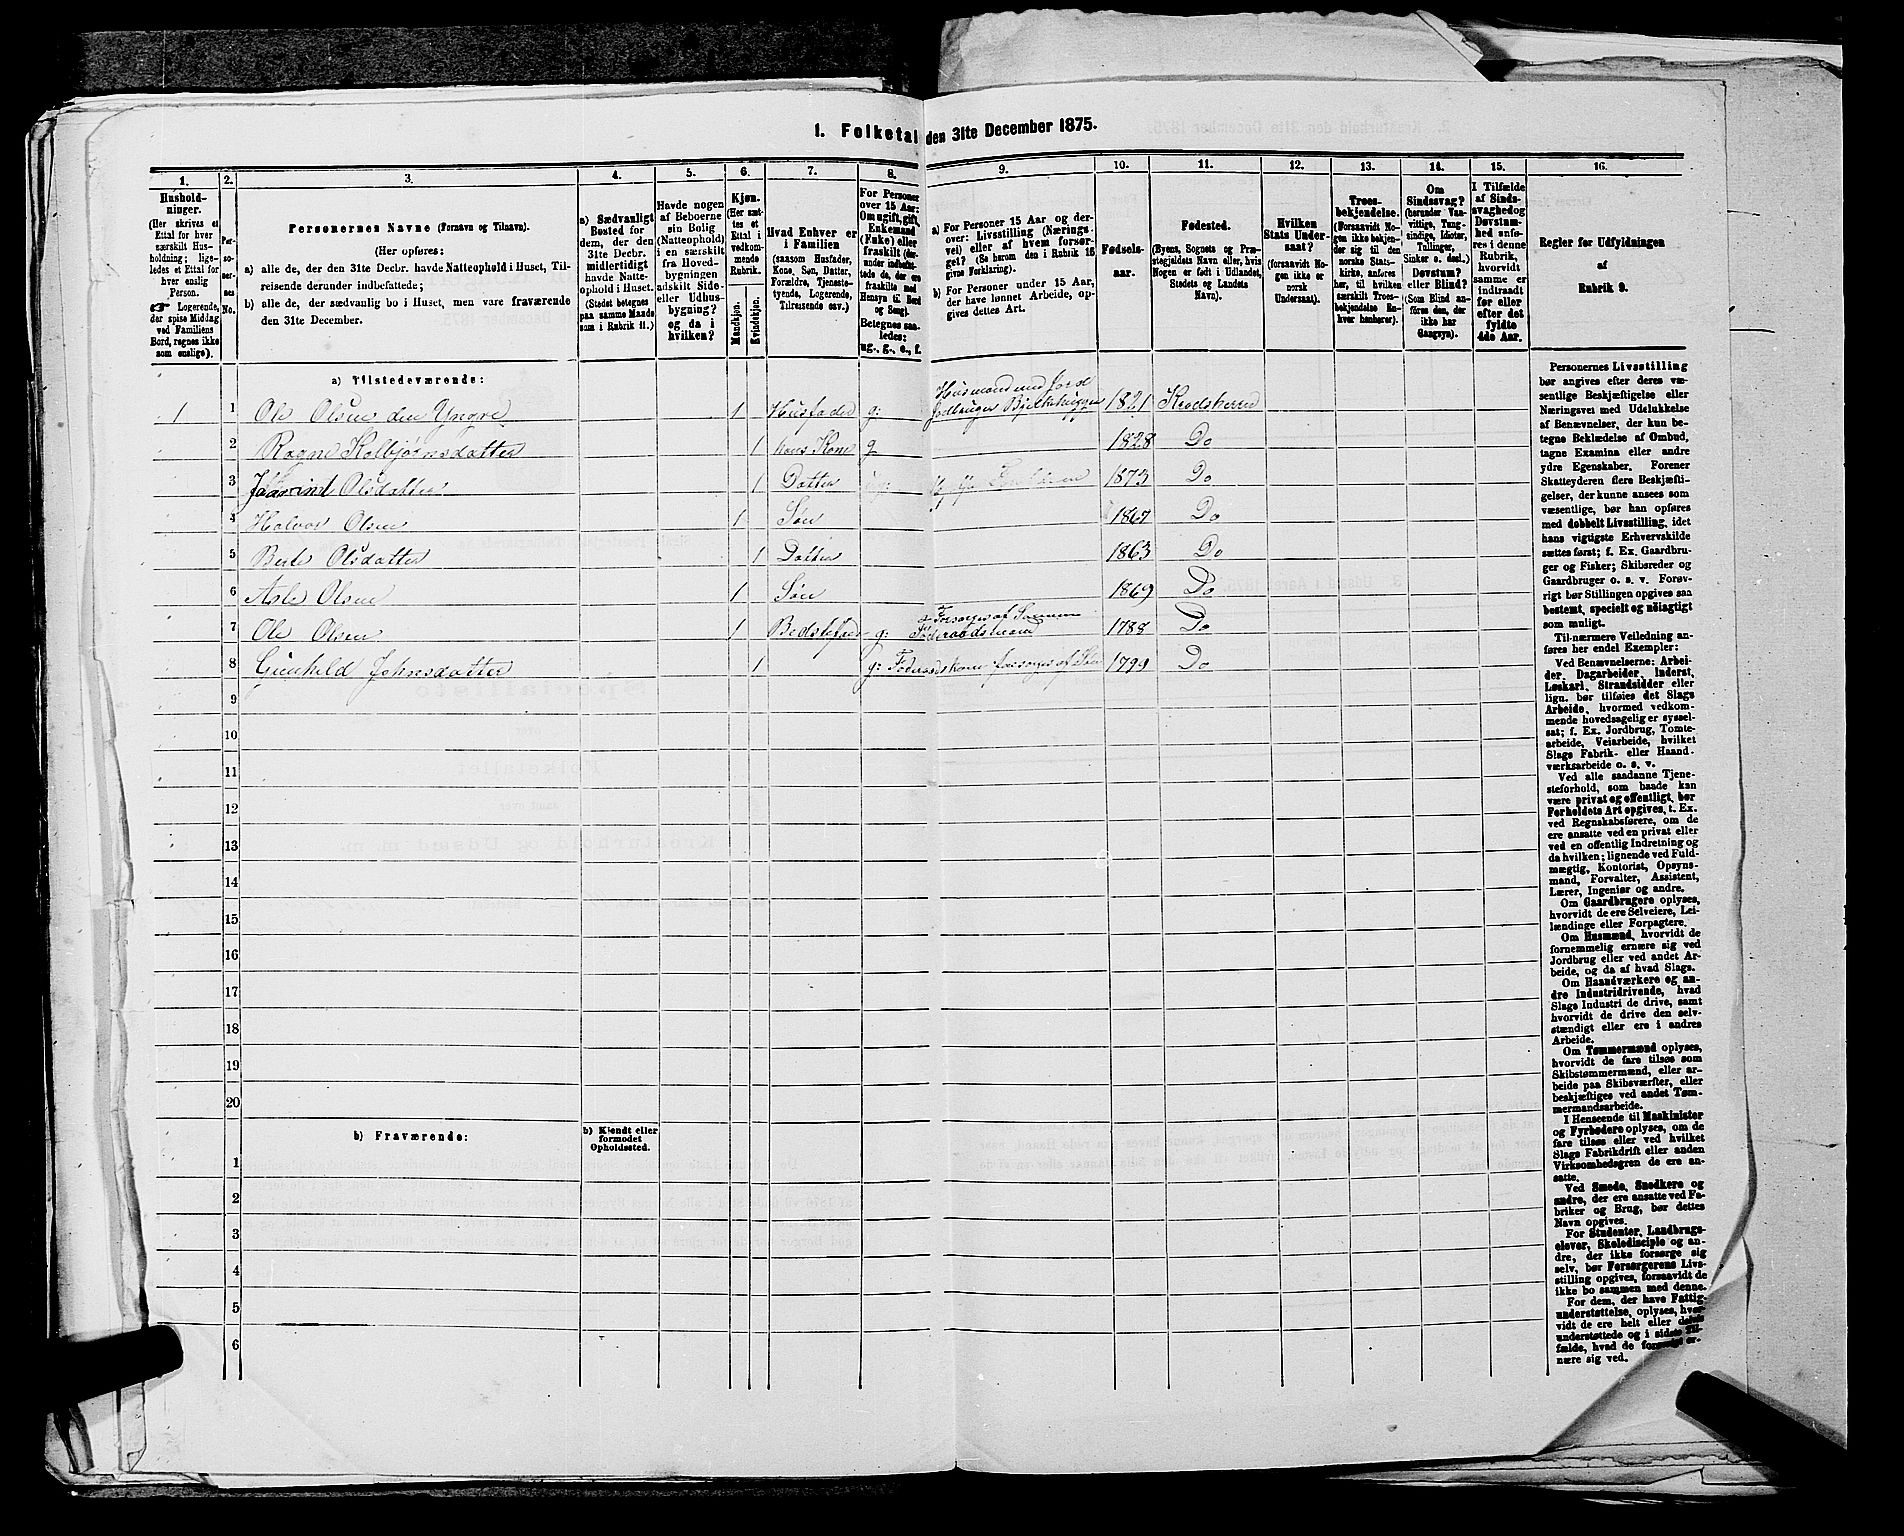 1. Folketal den 31te December 1875.
1. 2. 3. 4. 5. 6. 7. 8. 9. 10. 11. 12. 13. 14. 15. 16.
Hushold-
ninger.
(Her skrives et
Ettal for hver
særskilt Hus-
holdning; lige-
ledes et Ettal for
hver enslig
Person.
☞ Logerende,
der spise Middag
ved Familiens
Bord, regnes ikke
som enslige).
Per-
soner-
nes
No.
Personernes Navne (Fornavn og Tilnavn).
(Her opføres:
a) alle de, der den 31te Decbr. havde Natteophold i Huset, Til-
reisende derunder indbefattede;
b) alle de, der sædvanlig bo i Huset, men vare fraværende
den 31te December.
a) Sædvanligt
Bosted for
dem, der den
31te Decbr.
midlertidigt
havde Natte-
ophold i Huset.
(Stedet betegnes
paa samme Maade
som i Rubrik 11.)
Havde nogen
af Beboerne
sin Bolig
(Natteophold)
i en særskilt
fra Hoved-
bygningen
adskilt Side-
eller Udhus-
bygning?
og da i
hvilken?
Kjøn.
(Her sæt-
tes et
Ettal i
vedkom-
mende
Rubrik.
Mandkjøn.
Kvindekjøn.
Hvad Enhver er
i Familien
(saasom Husfader,
Kone, Søn, Datter,
Forældre, Tjeneste-
tyende, Logerende,
Tilreisende osv.)
For Personer
over 15 Aar:
Om ugift, gift,
Enkemand
(Enke) eller
fraskilt (der-
under indbefat-
tede de, der ere
fraskilte med
Hensyn til Bord
og Seng).
Betegnes saa-
ledes:
ug., g., e., f.
a) For Personer 15 Aar og der-
over: Livsstilling (Nærings-
vei) eller af hvem forsør-
get? (Se herom den i Rubrik 16
givne Forklaring).
b) For Personer under 15 Aar,
der have lønnet Arbeide, op-
gives dettes Art.
Fødsels-
aar.
Fødested.
(Byens, Sognets og Præ-
stegjeldets Navn eller, hvis
Nogen er født i Udlandet,
Stedets og Landets
Navn).
Hvilken
Stats Under-
saat?
(forsaavidt No-
gen ikke er
norsk
Undersaat).
Troes-
bekjendelse.
(Forsaavidt No-
gen ikke bekjen-
der sig til den
norske Stats-
kirke, anføres
her, til hvilken
særskilt Troes-
bekjendelse En-
hver henhører).
Om
Sindssvag?
(herunder Van-
vittige, Tung-
sindige, Idioter,
Tullinger,
Sinker o. desl.)
Døvstum?
eller Blind?
(Som Blind an-
føres den, der
ikke har
Gangsyn).
I Tilfælde
af Sinds-
svaghed og
Døvstum-
hed anfø-
res i denne
Rubrik,
hvorvidt
samme er
indtraadt
før eller
efter det
fyldte
4de Aar.
Regler for Udfyldningen
af
Rubrik 9.
a) Tilstedeværende:
1 1 Ole Olsen den Yngre 1 Husfader g: Husmand med Jord 1821 Krødsherred
2 Ragne Kolbjørnsdatter 1 hans Kone g 1828 Do
3 Olsdatter 1 Datter 1873 Do
4 Halvor Olsen 1 Søn 1867 Do
5 Berte Olsdatter 1 Datter 1863 Do
6 Asle Olsen 1 Søn 1869 Do
7 Ole Olsen 1 Bedstefader g: Forsørges af Sønnen Føderaadsmand 1788 Do
8 Gunhild Johnsdatter 1 g: Føderaadskone forsørges af Søn 1799 Do
9
10
11
12
13
14
15
16
17
18
19
20
b) Fraværende:
b) Kjendt eller
formodet
Opholdssted.
1
2
3
4
5
6
Personernes Livsstilling
bør angives efter deres væ-
sentlige Beskjæftigelse eller
Næringsvei med Udelukkelse
af Benævnelser, der kun be-
tegne Beklædelse af Ombud,
tagne Examina eller andre
ydre Egenskaber. Forener
Skatteyderen flere Beskjæfti-
gelser, der kunne ansees som
væsentlige, bør han opføres
med dobbelt Livsstilling, idet
hans vigtigste Erhvervskilde
sættes først; f. Ex. Gaardbru-
ger og Fisker; Skibsreder og
Gaardbruger o. s. v. Forøv-
rigt bør Stillingen opgives saa
bestemt, specielt og nøiagtigt
som muligt.
Til nærmere Veiledning an-
føres her endel Exempler:
Ved Benævnelserne: Arbei-
der, Dagarbeider, Inderst,
Løskarl, Strandsidder eller
lign. bør tilføies det Slags
Arbeide, hvormed vedkom-
mende hovedsagelig er syssel-
sat; f. Ex. Jordbrug, Tomte-
arbeide, Veiarbeide, hvilket
Slags Fabrik- eller Haand-
værksarbeide o. s. v.
Ved alle saadanne Tjene-
steforhold, som baade kan
være privat og offentligt, bør
Forholdets Art opgives, t. Ex.
ved Regnskabsførere, om de
ere ansatte ved en privat eller
ved en offentlig Indretning og
da hvilken; lignende ved Fuld-
mægtig, Kontorist, Opsyns-
mand, Forvalter, Assistent,
Lærer, Ingeniør og andre.
Om Gaardbrugere oplyses,
hvorvidt de ere Selveiere, Lei-
lændinge eller Forpagtere.
Om Husmænd, hvorvidt de
fornemmelig ernære sig ved
Jordbrug eller ved andet Ar-
beide, og da af hvad Slags.
Om Haandværkere og an-
dre Industridrivende, hvad
Slags Industri de drive, samt
hvorvidt de drive den selv-
stændigt eller ere i andres
Arbeide.
Om Tømmermænd oplyses,
hvorvidt de fare tilsøs som
Skibstømmermænd, eller ar-
beide paa Skibsværfter, eller
beskjæftiges ved andet Tøm-
mermandsarbeide.
I Henseende til Maskinister
og Fyrbødere oplyses, om de
fare tilsøs eller ved hvilket
Slags Fabrikdrift eller anden
Virksomhedsgren de ere an-
satte.
Ved Smede, Snedkere og
andre, der ere ansatte ved Fa-
briker og Brug, bør dettes
Navn opgives.
For Studenter, Landbrugs-
elever, Skoledisciple og an-
dre, der ikke forsørge sig
selv, bør Forsørgerens Livs-
stilling opgives, forsaavidt de
ikke bo sammen med denne.
For dem, der have Fattig-
understøttelse, oplyses, hvor-
vidt de ere helt eller delvis
understøttede og i sidste Til-
fælde, hvad de forøvrigt er-
nære sig ved.